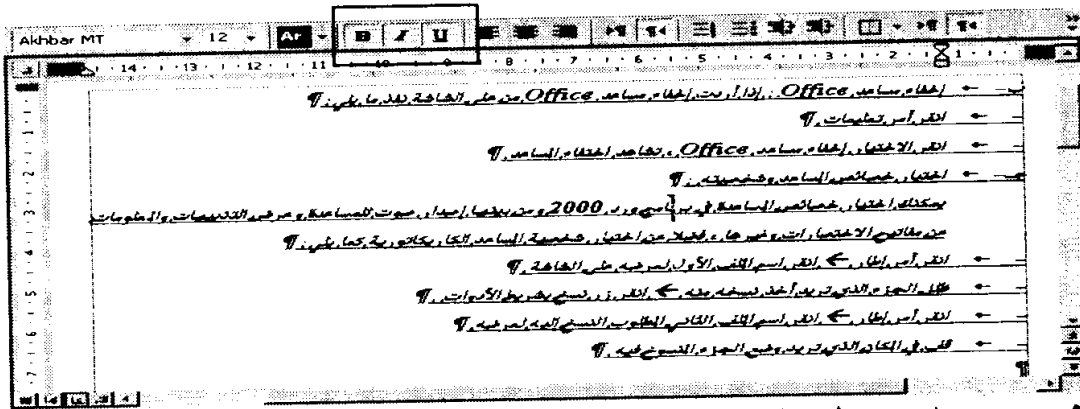 Akhbar MT 12 B I U
14 13 12 11 10 9 8 7 6 5 4 3 2 1 1
إخفاء مساعد Office : إذا أردت إخفاء مساعد Office من على الشاشة نفذ ما يلي: ¶
انقر أمر تعليمات. ¶
انقر الاختيار إخفاء مساعد Office ، تشاهد اختفاء المساعد. ¶
اختيار خصائص المساعد وشخصيته : ¶
يمكنك اختيار خصائص المساعدة في برنامج ورد 2000 ومن بينها إصدار صوت للمساعدة وعرض التنبيهات والمعلومات
عن مفاتيح الاختصارات وغيرها ، فضلا عن اختيار شخصية المساعد الكاريكاتورية كما يلي: ¶
انقر أمر إطار ← انقر اسم الملف الأول لعرضه على الشاشة. ¶
ظلل الجزء الذي تريد أخذ نسخه منه ← انقر زر نسخ بشريط الأدوات. ¶
انقر أمر إطار ← انقر اسم الملف الثاني المطلوب النسخ اليه لعرضه. ¶
قف في المكان الذي تريد وضع الجزء المنسوخ فيه. ¶